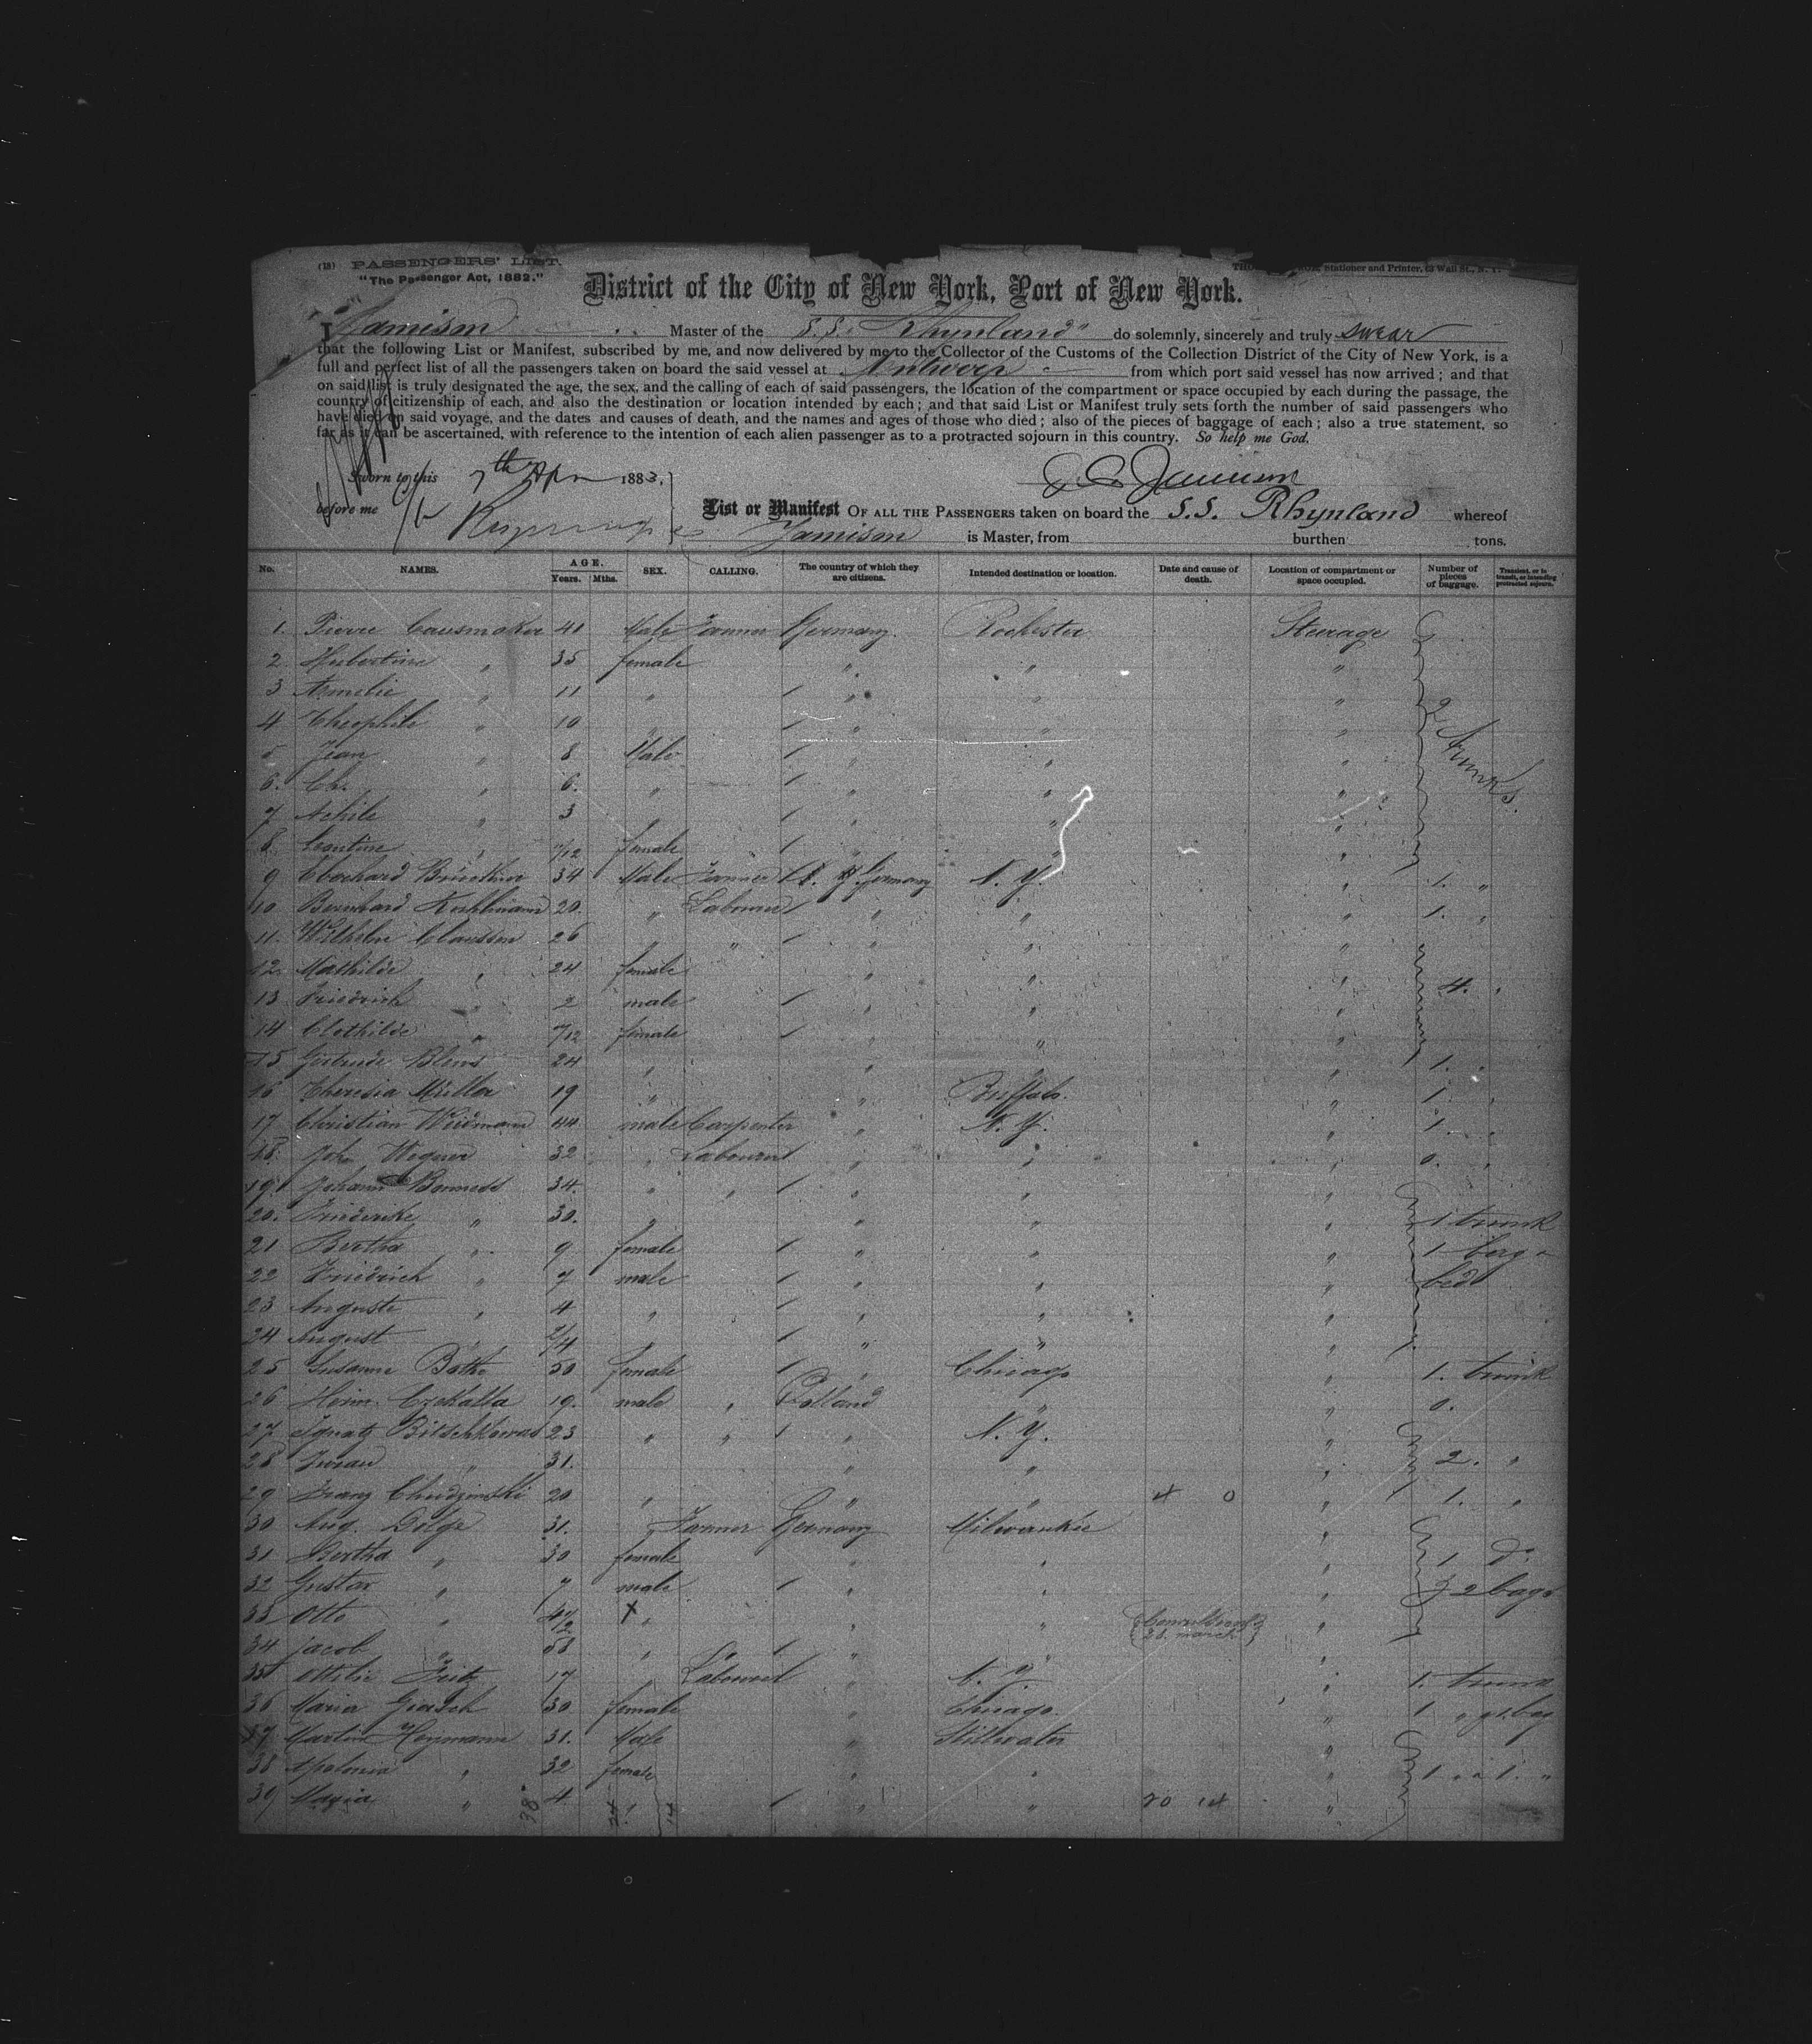 (13) PASSENGERS' LIST.
"The Passenger Act, 1882."
Stationer and Printer, 63 Wall St., N. Y.
District of the City of New York, Port of New York.
I Jamison Master of the S.S. "Rhynland" do solemnly, sincerely and truly swear
that the following List or Manifest, subscribed by me, and now delivered by me to the Collector of the Customs of the Collection District of the City of New York, is a
full and perfect list of all the passengers taken on board the said vessel at Antwerp from which port said vessel has now arrived; and that
on said list is truly designated the age, the sex, and the calling of each of said passengers, the location of the compartment or space occupied by each during the passage, the
country of citizenship of each, and also the destination or location intended by each; and that said List or Manifest truly sets forth the number of said passengers who
have died on said voyage, and the dates and causes of death, and the names and ages of those who died; also of the pieces of baggage of each; also a true statement, so
far as it can be ascertained, with reference to the intention of each alien passenger as to a protracted sojourn in this country. So help me God.
Sworn to this 7th Apr 1883, Jamison
before me
List or Manifest OF ALL THE PASSENGERS taken on board the S.S. Rhynland whereof
Jamison is Master, from burthen tons.
No. NAMES. AGE. Years. Mths. SEX. CALLING. The country of which they are citizens. Intended destination or location. Date and cause of death. Location of compartment or space occupied. Number of pieces of baggage. Transient, or in transit, or intending protracted sojourn.
1. Pierre 41 Male Farmer Germany. Rochester Steerage
2. Hubertine " 35 female " " "
3 Amelie " 11 " " " " 2 trunks.
4 Theophile " 10 " " " "
5 Jean " 8 Male " " "
6. Ch. " 6. " " " "
7 Achile " 3 " " " "
8 Leontine " /12 female " " "
9 Eberhard 34 Male Farmer Germany N. Y. " 1. "
10 Bernhard Kuhlmann 20. " Labourer " " " 1. "
11. Wilhelm Claussen 26 " " " " "
12. Mathilde " 24 female " " "
13 Friedrich " 2 male " " " 4. "
14 Clothilde " 7/12 female " " "
15 Gertrude Blens 24 " " " 1. "
16 Theresia Müller 19 " " Buffalo. " 1. "
17 Christian Weidmann 44 male Carpenter " N. Y. " 1. "
18. Joh. Wegner 32 " Labourer " " " 0. "
19 Johann 34. " " " " "
20. Friederike " 30. " " " " 1 trunk
21 Bertha " 9 female " " " 1 bag
22 Friedrich " 7 male " " " bed
23 Auguste " 4 " " " "
24 August " 2/4 " " " "
25 Susanne Bothe 50 female " Chicago " 1. trunk
26 Heinr. Czekalla 19. male " Polland " " 0.
27 Ignatz 23 " " " N. Y. "
28 " 31. " " " 2. "
29 Franz Chudzinski 20 " " " 4 0 " 1. "
30 Aug. Dolge 31. Farmer Germany Milwaukie "
31 Bertha " 30 female " " " 1 do
32 Gustav " 7 male " " " 2 bags
33 Otto " X " " " 28. march "
34 Jacob " " " "
35 Ottilie Fritz 17 Labourer " N. Y. " 1. trunk
36 Maria 30 female " Chicago. " 1 " 1. bag
37 Martin Heymann 31. Male " Stillwater "
38 Apolonia " 32 female " " " 1 " 1. "
39 Maria " 4. " " " 20 14 "
38 24 14